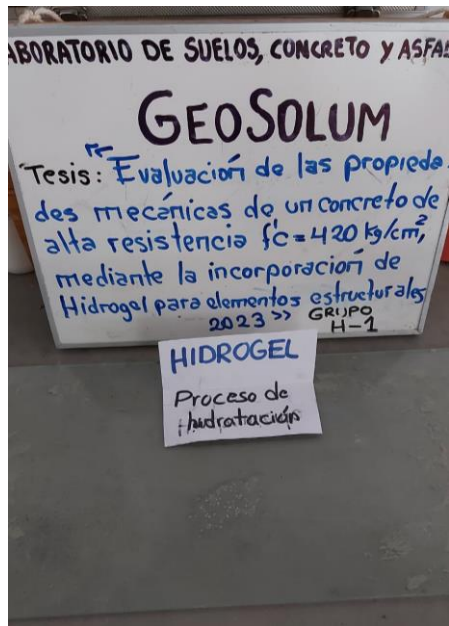 ABORATORIO DE SUELOS, CONCRETO Y ASFA
GEOSOLUM
Tesis: "Evaluación de las propieda-
des mecánicas de un concreto de
alta resistencia f'c=420 kg/cm²,
mediante la incorporación de
Hidrogel para elementos estructurales
2023" GRUPO
H-1
HIDROGEL
Proceso de
hidratación